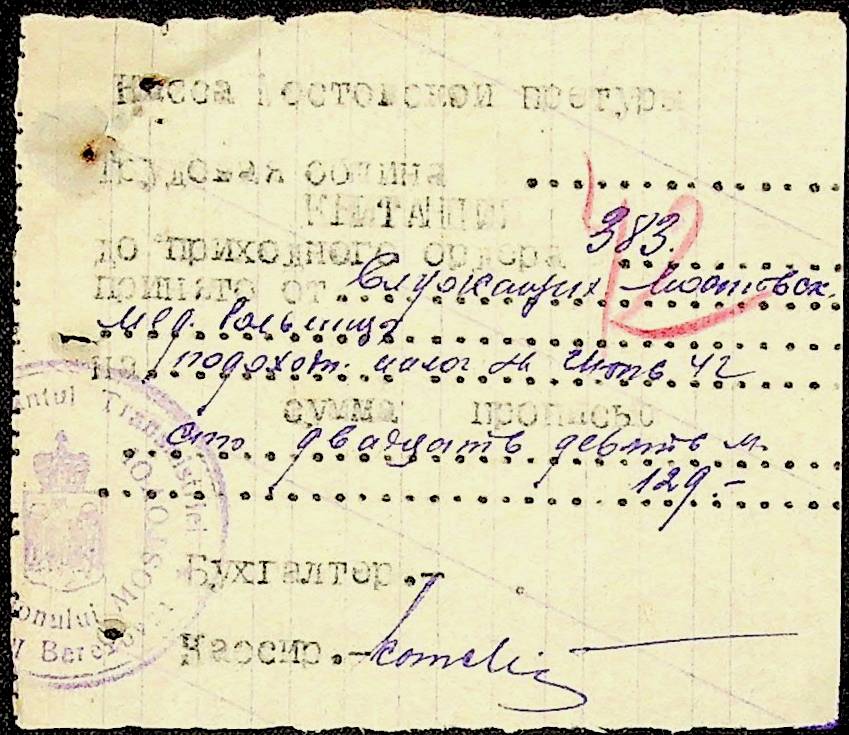 Касса Мостовской претуры
Трудовая община
КВИТАНЦИЯ
до приходного ордера 383.
принято от Служащих Мостовск.
мед. больницы
на подоход. налог за июнь 42
сумма прописью
сто двадцать девять м.
129.-
Бухгалтер.-
Кассир.-
ntul Transnistriei
onului MOSTOVOI
Berezovca
42